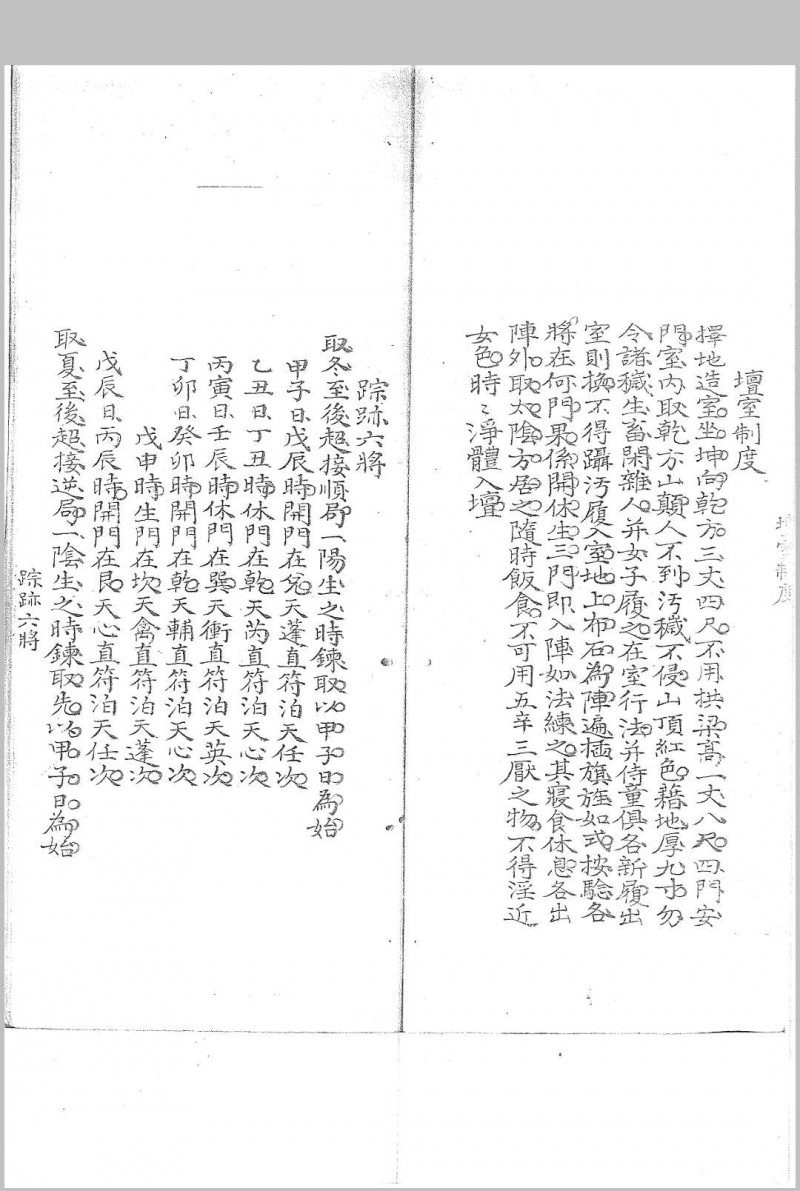 壇室制度
擇地造室坐坤向乾方三丈四尺不用拱梁高一丈八尺四門安
門室內取乾方山顛人不到汚穢不侵山頂紅色藉地厚九寸勿
令諸穢生畜閑雜人并女子履之在室行法并侍童俱各新履出
室則換不得躡汚履入室地上布石為陣遍插旗旌如式按驗各
將在何門果係開休生三門即入陣如法練之其寢食休息各出
陣外取太陰方居之隨時飯食不可用五辛三厭之物不得淫近
女色時〻淨體入壇
壇室制度
踪跡六將
取冬至後超接順局一陽生之時鍊取以甲子日為始
甲子日戊辰時開門在兌天蓬直符泊天任次
乙丑日丁丑時休門在乾天芮直符泊天心次
丙寅日壬辰時休門在巽天衝直符泊天英次
丁卯日癸卯時開門在乾天輔直符泊天心次
戊申時生門在坎天禽直符泊天蓬次
戊辰日丙辰時開門在艮天心直符泊天任次
取夏至後超接逆局一陰生之時鍊取先以甲子日為始
踪跡六將